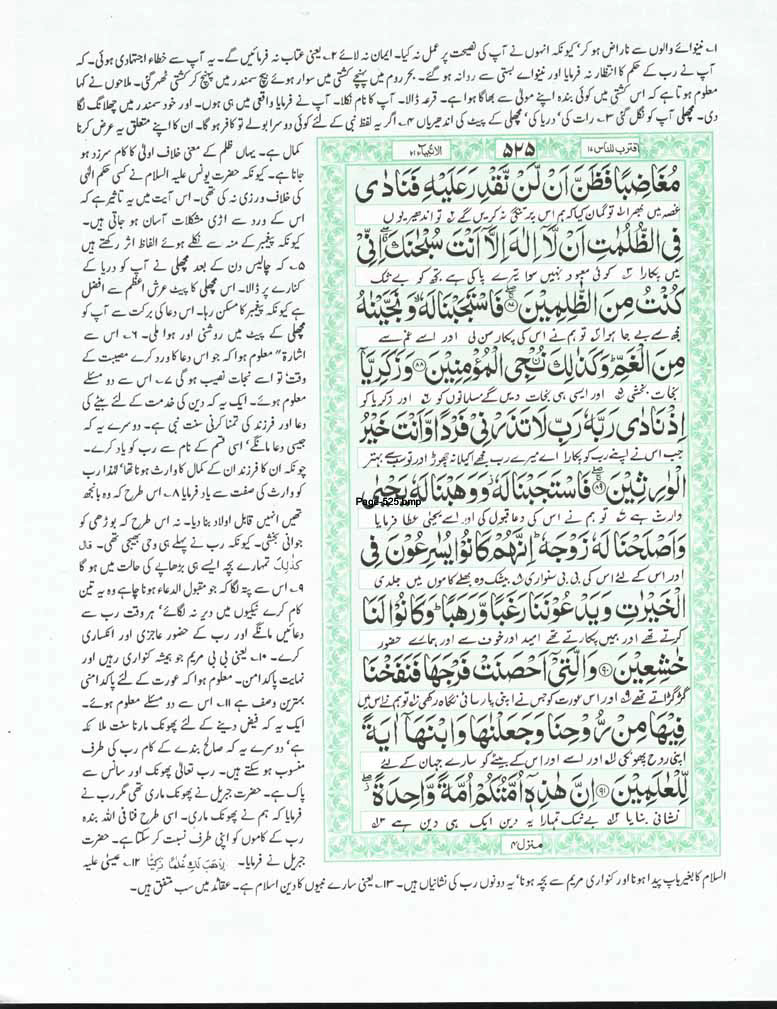 ۱۔ نینوائے والوں سے ناراض ہو کر' کیونکہ انہوں نے آپ کی نصیحت پر عمل نہ کیا۔ ایمان نہ لائے ۲۔ یعنی عتاب نہ فرمائیں گے۔ یہ آپ سے خطاء اجتہادی ہوئی۔ کہ
آپ نے رب کے حکم کا انتظار نہ فرمایا اور نینواے بستی سے روانہ ہو گئے۔ بحر روم میں پہنچے کشتی میں سوار ہوئے بیچ سمندر میں پہنچ کر کشتی ٹھہر گئی۔ ملاحوں نے کہا
معلوم ہوتا ہے کہ اس کشتی میں کوئی بندہ اپنے مولیٰ سے بھاگا ہوا ہے۔ قرعہ ڈالا۔ آپ کا نام نکلا۔ آپ نے فرمایا واقعی میں ہی ہوں۔ اور خود سمندر میں چھلانگ لگا
دی۔ مچھلی آپ کو نگل گئی ۳۔ رات کی' دریا کی' مچھلی کے پیٹ کی اندھیریاں ۴۔ اگر یہ لفظ نبی کے لئے کوئی دوسرا بولے تو کافر ہو گا۔ ان کا اپنے متعلق یہ عرض کرنا
کمال ہے۔ یہاں ظلم کے معنی خلاف اولیٰ کا کام سرزد ہو
جانا ہے۔ کیونکہ حضرت یونس علیہ السلام نے کسی حکم الٰہی
کی خلاف ورزی نہ کی تھی۔ اس آیت میں یہ تاثیر ہے کہ
اس کے ورد سے اڑی مشکلات آسان ہو جاتی ہیں۔
کیونکہ پیغمبر کے منہ سے نکلے ہوئے الفاظ اثر رکھتے ہیں
۵۔ کہ چالیس دن کے بعد مچھلی نے آپ کو دریا کے
کنارے پر ڈالا۔ اس مچھلی کا پیٹ عرش اعظم سے افضل
ہے کیونکہ پیغمبر کا مسکن رہا۔ اس دعا کی برکت سے آپ کو
مچھلی کے پیٹ میں روشنی اور ہوا ملی۔ ۶۔ اس سے
اشارۃً معلوم ہوا کہ جو اس دعا کا ورد کرے مصیبت کے
وقت' تو اسے نجات نصیب ہو گی ۷۔ اس سے دو مسئلے
معلوم ہوئے۔ ایک یہ کہ دین کی خدمت کے لئے بیٹے کی
دعا اور فرزند کی تمنا کرنی سنت نبی ہے۔ دوسرے یہ کہ
جیسی دعا مانگے' اسی قسم کے نام سے رب کو یاد کرے۔
چونکہ ان کا فرزند ان کے کمال کا وارث ہونا تھا' لہٰذا رب
کو وارث کی صفت سے یاد فرمایا ۸۔ اس طرح کہ وہ بانجھ
تھیں انہیں قابل اولاد بنا دیا۔ نہ اس طرح کہ بوڑھی کو
جوانی بخشی۔ کیونکہ رب نے پہلے ہی وحی بھیجی تھی۔ قال
كذلك تمہارے بچہ ایسے ہی بڑھاپے کی حالت میں ہو گا
۹۔ اس سے پتہ لگا کہ جو مقبول الدعاء ہونا چاہے وہ یہ تین
کام کرے نیکیوں میں دیر نہ لگائے' ہر وقت رب سے
دعائیں مانگے اور رب کے حضور عاجزی اور انکساری
کرے۔ ۱۰۔ یعنی بی بی مریم جو ہمیشہ کنواری رہیں اور
نہایت پاکدامن۔ معلوم ہوا کہ عورت کے لئے پاکدامنی
بہترین وصف ہے ۱۱۔ اس سے دو مسئلے معلوم ہوئے۔
ایک یہ کہ فیض دینے کے لئے پھونک مارنا سنت ملا ئکہ
ہے' دوسرے یہ کہ صالح بندے کے کام رب کی طرف
منسوب ہو سکتے ہیں۔ رب تعالیٰ پھونک اور سانس سے
پاک ہے۔ حضرت جبریل نے پھونک ماری تھی مگر رب نے
فرمایا کہ ہم نے پھونک ماری۔ اسی طرح فنا فی اللہ بندہ
رب کے کاموں کو اپنی طرف نسبت کر سکتا ہے۔ حضرت
جبریل نے فرمایا۔ لِاَهَبَ لَكِ غُلٰمًا زَكِيًّا ۱۲۔ عیسیٰ علیہ
السلام کا بغیر باپ پیدا ہونا اور کنواری مریم سے بچہ ہونا' یہ دونوں رب کی نشانیاں ہیں۔ ۱۳۔ یعنی سارے نبیوں کا دین اسلام ہے۔ عقائد میں سب متفق ہیں۔
اقترب للناس ۱۷ ۵۲۵ الانبیاء ۲۱
مُغَاضِبًا فَظَنَّ اَنْ لَّنْ نَّقْدِرَ عَلَيْهِ فَنَادٰى
غصہ میں بھرا تو گمان کیا کہ ہم اس پر تنگی نہ کریں گے تو اندھیریوں
فِى الظُّلُمٰتِ اَنْ لَّاۤ اِلٰهَ اِلَّاۤ اَنْتَ سُبْحٰنَكَ اِنِّىْ
میں پکارا کوئی معبود نہیں سوا تیرے پاکی ہے تجھ کو بے شک
كُنْتُ مِنَ الظّٰلِمِيْنَ ۸۷ فَاسْتَجَبْنَا لَهٗ وَنَجَّيْنٰهُ
مجھ سے بے جا ہوا تو ہم نے اس کی پکار سن لی اور اسے غم سے
مِنَ الْغَمِّ وَكَذٰلِكَ نُـنْجِى الْمُؤْمِنِيْنَ ۸۸ وَزَكَرِيَّاۤ
نجات بخشی اور ایسی ہی نجات دیں گے مسلمانوں کو اور زکریا کو
اِذْ نَادٰى رَبَّهٗ رَبِّ لَا تَذَرْنِىْ فَرْدًا وَّاَنْتَ خَيْرُ
جب اس نے اپنے رب کو پکارا اے میرے رب مجھے اکیلا نہ چھوڑ اور تو سب سے بہتر
الْوٰرِثِيْنَ ۸۹ فَاسْتَجَبْنَا لَهٗ وَوَهَبْنَا لَهٗ يَحْيٰى
Page-525.bmp
وارث ہے تو ہم نے اس کی دعا قبول کی اور اسے یحییٰ عطا فرمایا
وَاَصْلَحْنَا لَهٗ زَوْجَهٗ اِنَّهُمْ كَانُوْا يُسٰرِعُوْنَ فِى
اور اس کے لئے اس کی بی بی سنواری بیشک وہ بھلے کاموں میں جلدی
الْخَيْرٰتِ وَيَدْعُوْنَنَا رَغَبًا وَّرَهَبًا وَكَانُوْا لَنَا
کرتے تھے اور ہمیں پکارتے تھے امید اور خوف سے اور ہمارے حضور
خٰشِعِيْنَ ۹۰ وَالَّتِىْۤ اَحْصَنَتْ فَرْجَهَا فَنَفَخْنَا
گڑگڑاتے تھے اور اس عورت کو جس نے اپنی پارسائی نگاہ رکھی تو ہم نے اس میں
فِيْهَا مِنْ رُّوْحِنَا وَجَعَلْنٰهَا وَابْنَهَاۤ اٰيَةً
اپنی روح پھونکی اور اسے اور اس کے بیٹے کو سارے جہان کے لئے
لِّلْعٰلَمِيْنَ ۹۱ اِنَّ هٰذِهٖۤ اُمَّتُكُمْ اُمَّةً وَّاحِدَةً
نشانی بنایا بے شک تمہارا یہ دین ایک ہی دین ہے
منزل ۴